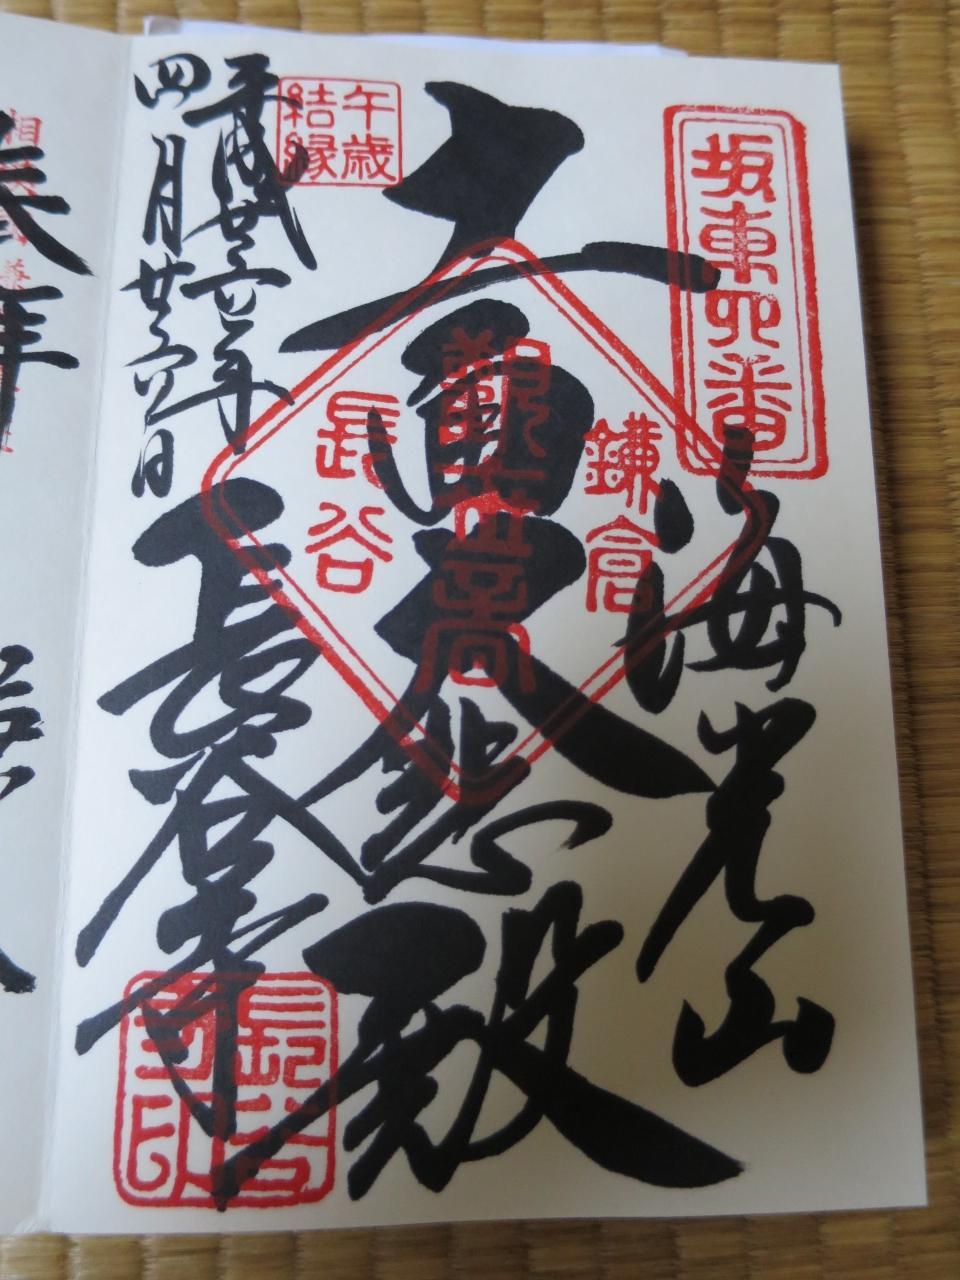 坂東四番
海光山
鎌倉
観世音
長谷
十一面大悲殿
午歳
結縁
平成廿六年
四月廿六日
長谷寺
長谷
寺印
拝